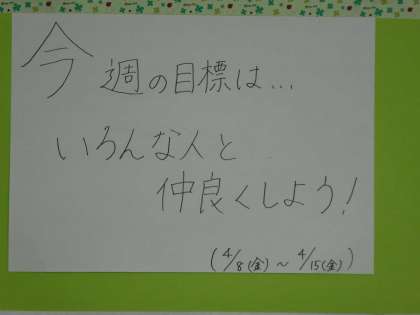 今週の目標は...
いろんな人と
仲良くしよう!
(4/8(金)～4/15(金))